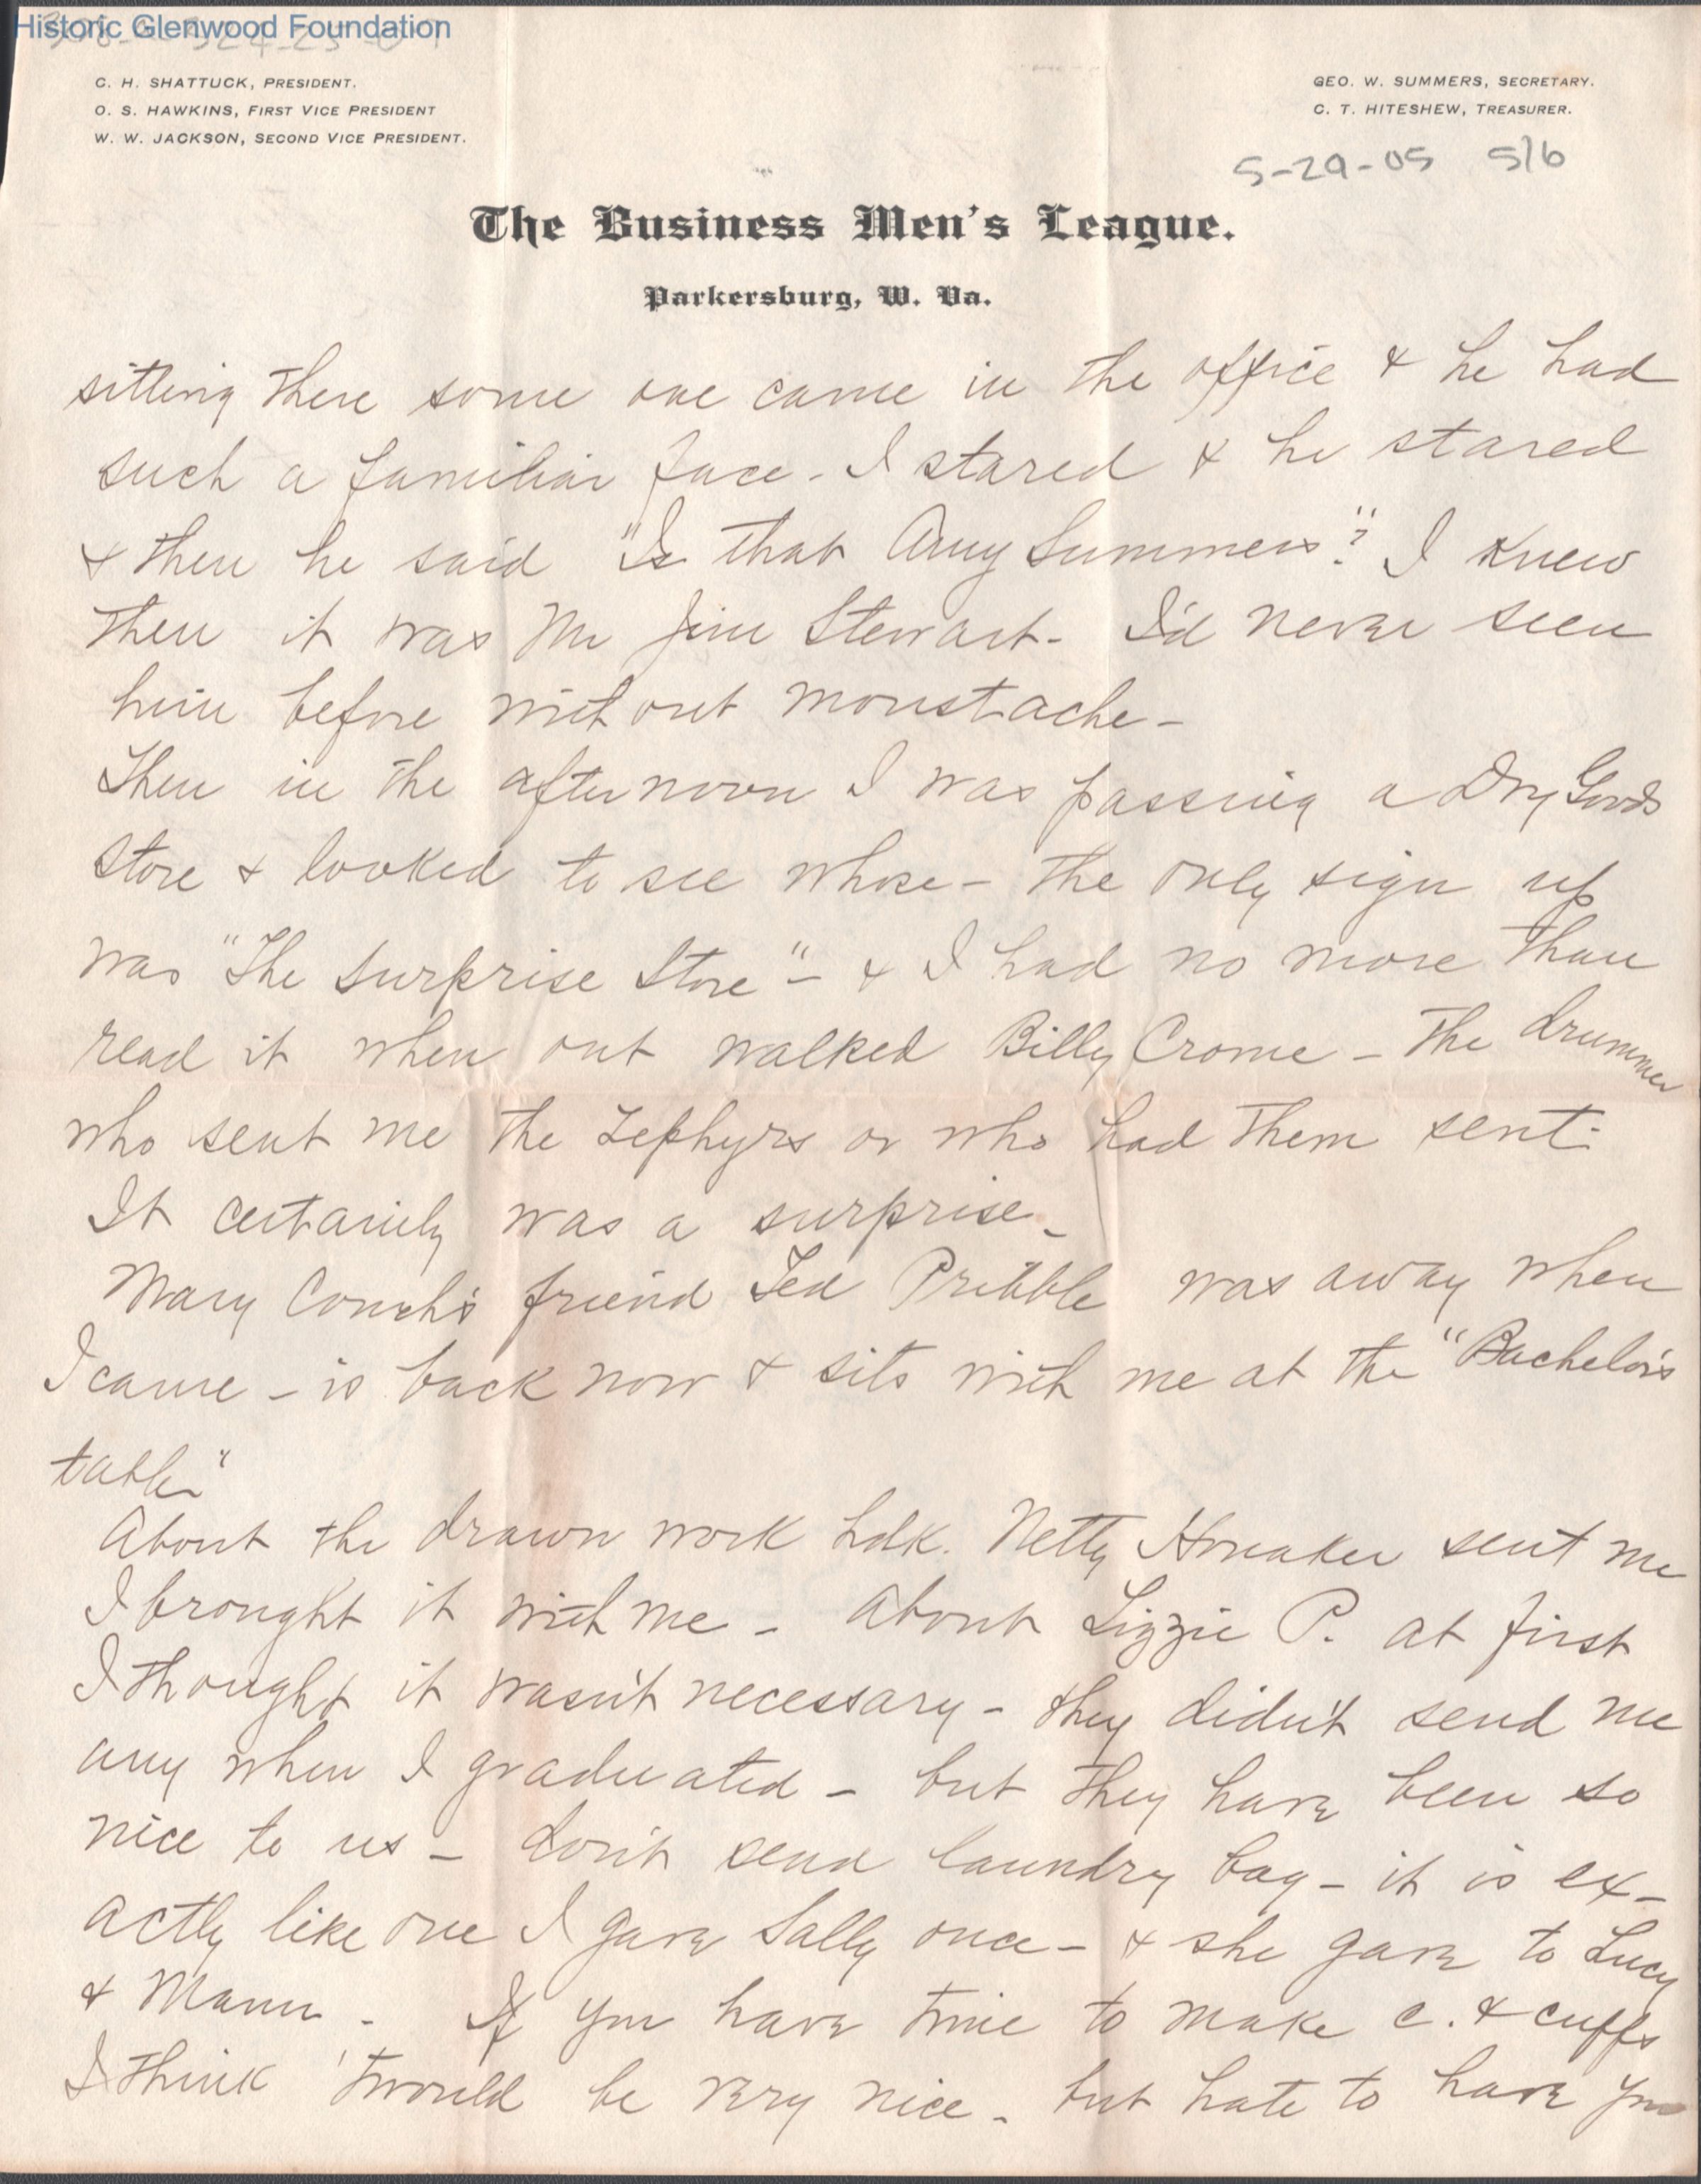 Historic Glenwood Foundation
C. H. SHATTUCK, PRESIDENT.
O. S. HAWKINS, FIRST VICE PRESIDENT
W. W. JACKSON, SECOND VICE PRESIDENT.
GEO. W. SUMMERS, SECRETARY.
C. T. HITESHEW, TREASURER.
5-29-05 5/6
The Business Men's League.
Parkersburg, W. Va.
sitting there some one came in the office & he had
such a familiar face - I stared & he stared
& then he said "Is that Amy Summers"? I knew
then it was Mr Jim Stewart - I'd never seen
him before without moustache -
Then in the afternoon I was passing a Dry Goods
Store & looked to see whose - the only sign up
was "The Surprise Store" - & I had no more than
read it when out walked Billy Crome - the drummer
who sent me the Zephyrs or who had them sent.
It certainly was a surprise -
Mary Couch's friend Ted Pribble was away when
I came - is back now & sits with me at the "Bachelor's
table"
About the drawn work hdk. Netty Honaker sent me
I brought it with me - About Lizzie P. at first
I thought it wasn't necessary - they didn't send me
any when I graduated - but they have been so
nice to us - don't send laundry bag - it is ex-
actly like one I gave Sally once - & she gave to Lucy
& Mann - If you have time to make c. & cuffs
I think 'twould be very nice - but hate to have you